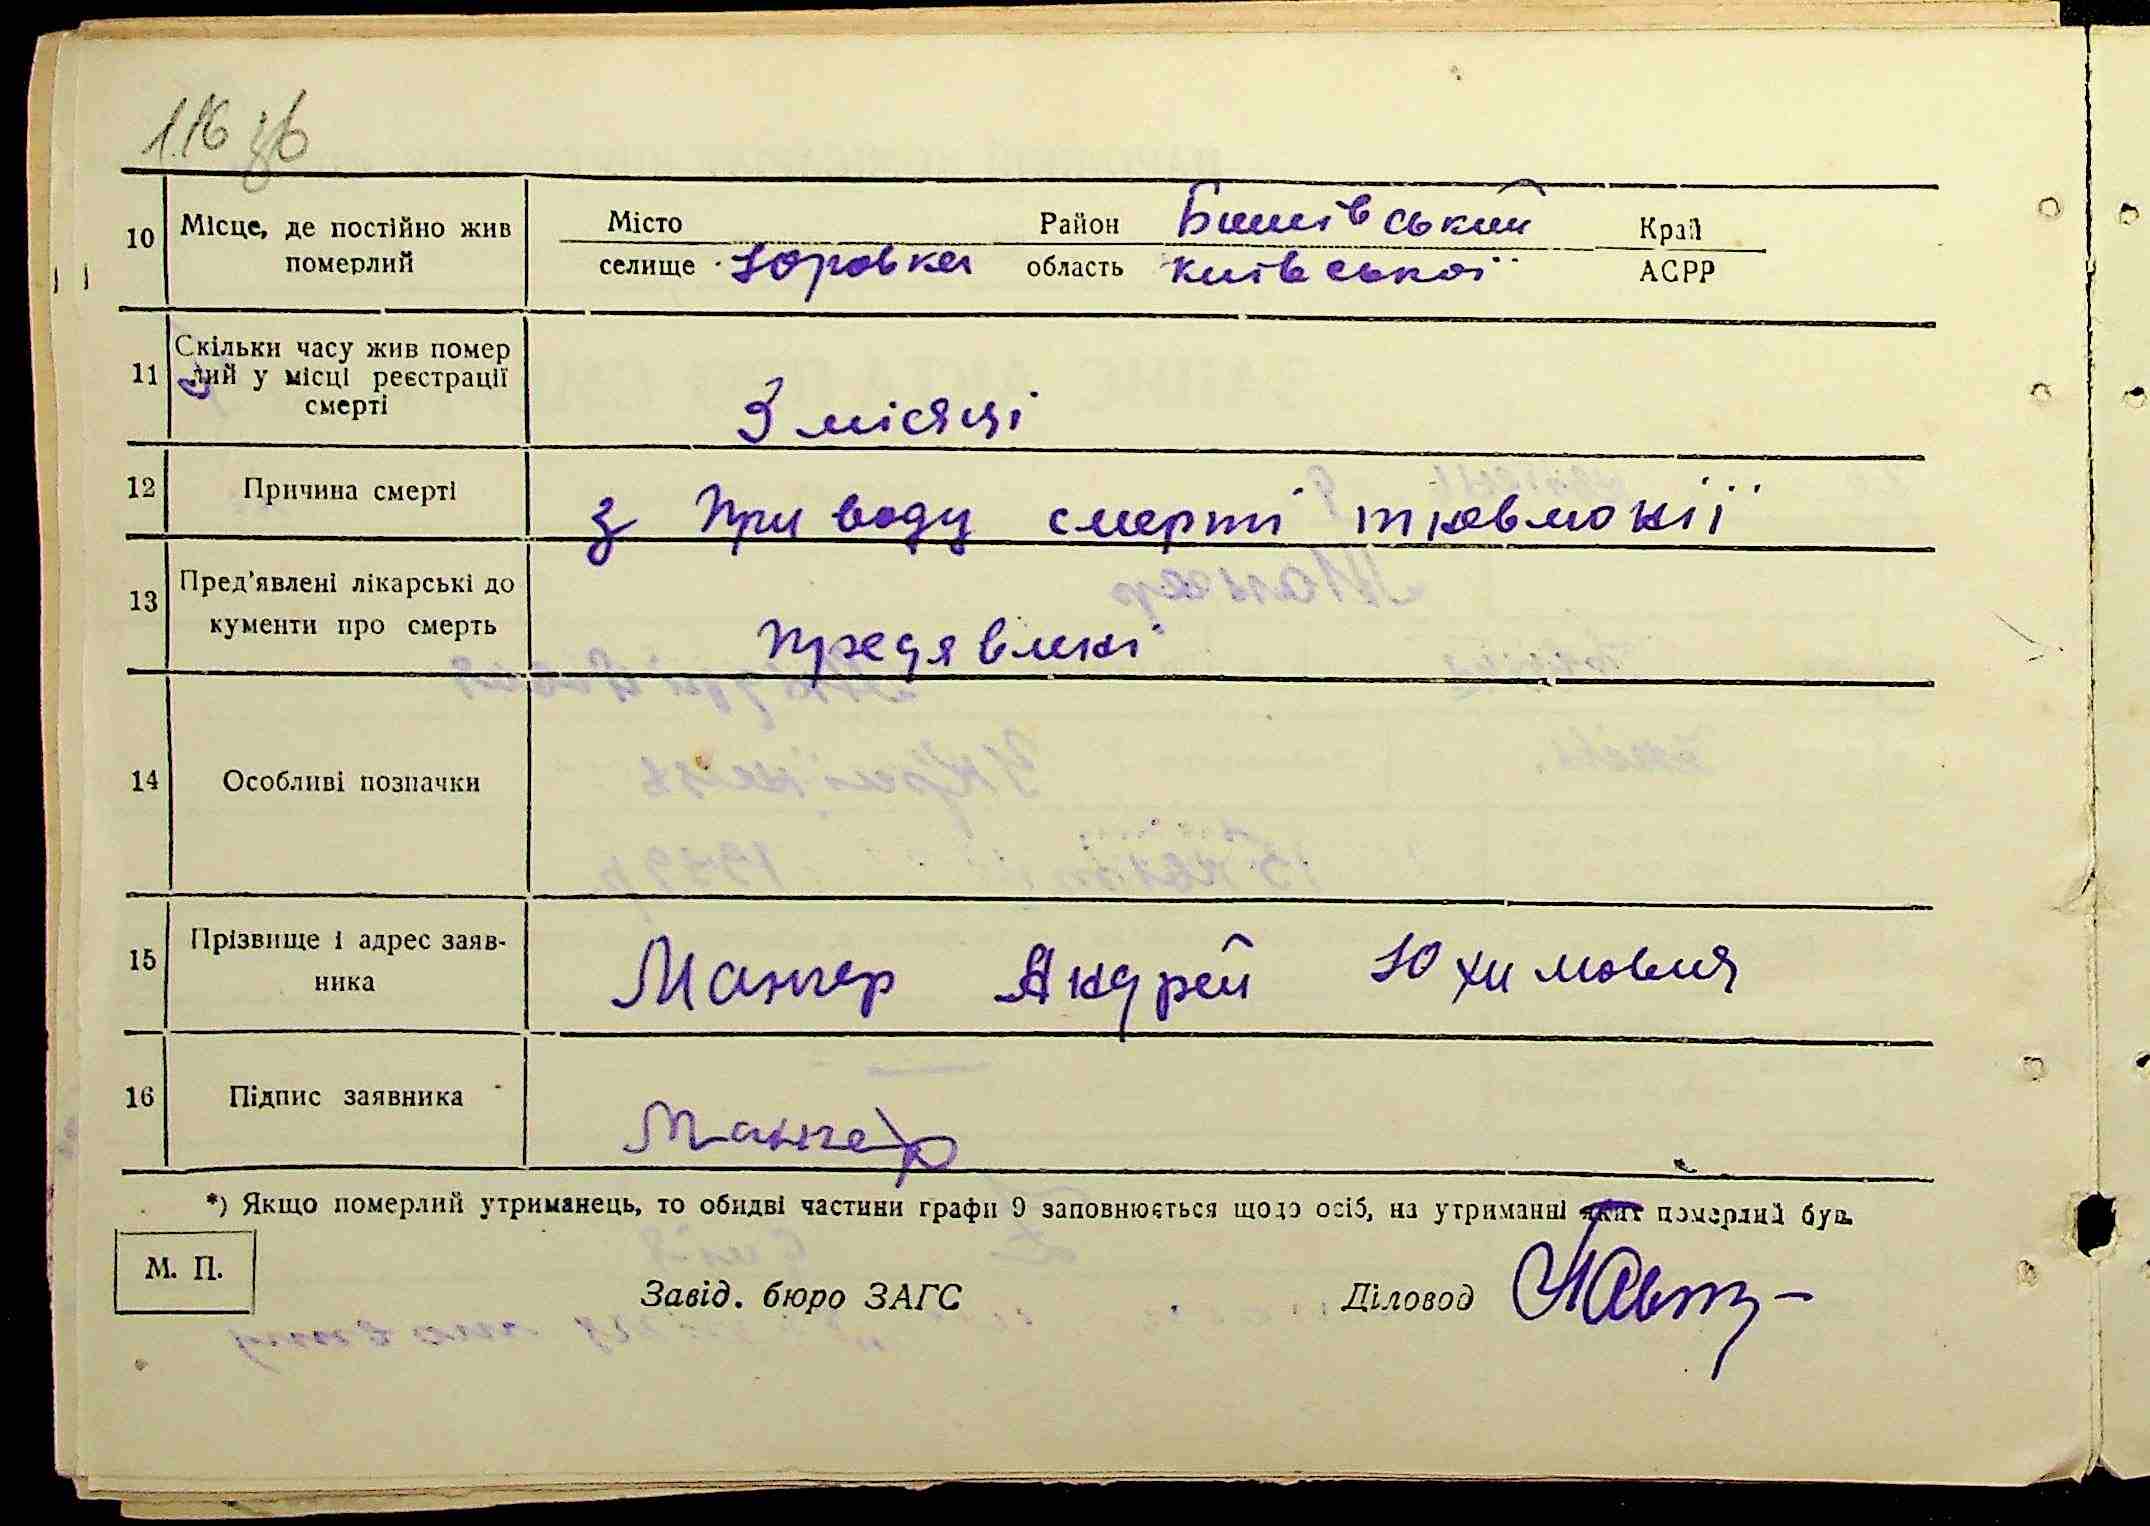 116 зв
10 Місце, де постійно жив померлий
Місто Район Бишівський Край
селище Юровка область київської АСРР
11 Скільки часу жив помер
лий у місці реєстрації
смерті
3 місяці
12 Причина смерті
з приводу смерті пневмонії
13 Пред'явлені лікарські до
кументи про смерть
предявлені
14 Особливі позначки
15 Прізвище і адрес заяв-
ника
Мангер Андрей Юхимовия
16 Підпис заявника
Мангер
*) Якщо померлий утриманець, то обидві частини графи 9 заповнюється щодо осіб, на утриманні яких померлий був.
М. П.
Завід. бюро ЗАГС Діловод